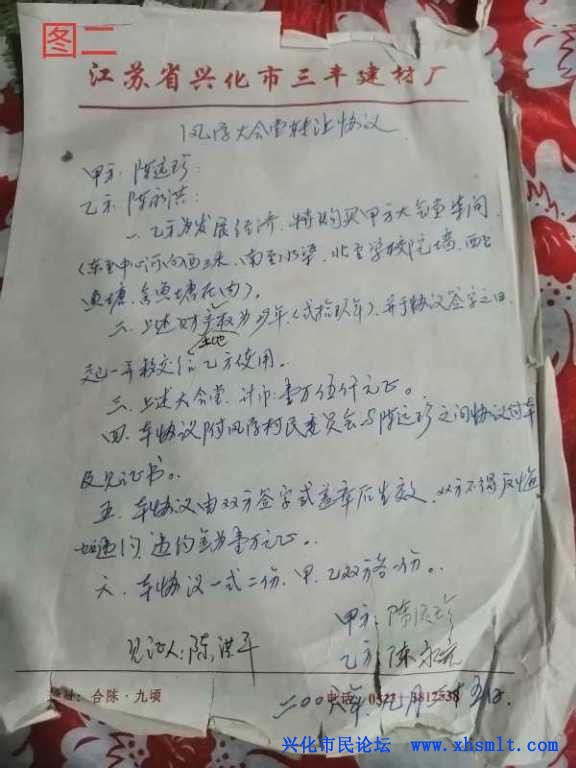 图二
江苏省兴化市三丰建材厂
大会堂转让协议
甲方：陈远珍：
乙方：陈永洪：
一、乙方为发展经济，特购买甲方大会堂车间
（东至中心河向西三米，南至 ，北至学校院墙，西至
鱼塘，含鱼塘在内）。
二、上述财产权为 年（贰拾玖年），并于协议签字之日
土地
起一并移交给乙方使用。
三、上述大会堂，计币：壹万伍仟元正。
四、本协议附 村民委员会与陈远珍之间协议 本
及见证书。
五、本协议由双方签字或盖章后生效，双方不得反悔
如违约，违约金为壹万元正。
六、本协议一式二份，甲、乙双方各一份。
甲方：陈远珍
见证人：陈洪平
乙方：陈永
地址：合陈·九顷
电话：0523
二00 年 九月
兴化市民论坛 www.xhsmlt.com